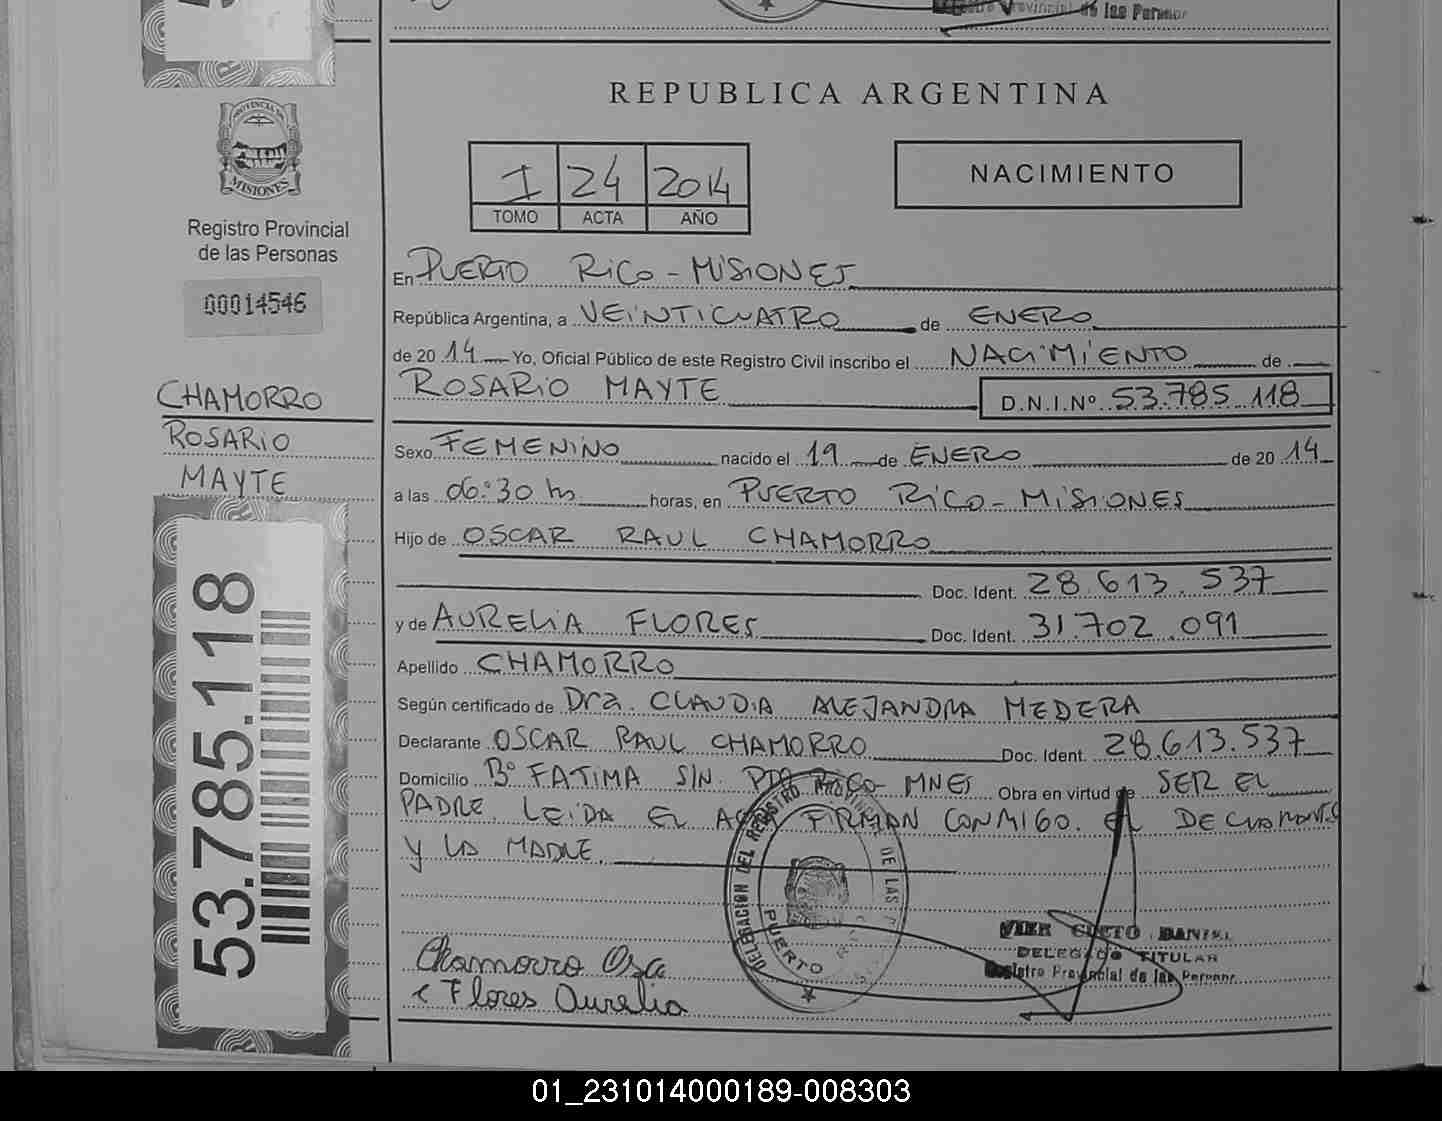 Registro Provincial de las Personas
REPUBLICA ARGENTINA
PROVINCIA DE
MISIONES
I 24 2014
TOMO ACTA AÑO
NACIMIENTO
Registro Provincial
de las Personas
00014546
CHAMORRO
ROSARIO
MAYTE
53.785.118
En PUERTO RICO - MISIONES
República Argentina, a VEINTICUATRO de ENERO
de 20 14 Yo, Oficial Público de este Registro Civil inscribo el NACIMIENTO de
ROSARIO MAYTE D.N.I.Nº 53.785.118
Sexo FEMENINO nacido el 19 de ENERO de 20 14
a las 06:30 hs horas, en PUERTO RICO - MISIONES
Hijo de OSCAR RAUL CHAMORRO
Doc. Ident. 28.613.537
y de AURELIA FLORES Doc. Ident. 31.702.091
Apellido CHAMORRO
Según certificado de Dra. CLAUDIA ALEJANDRA MEDERA
Declarante OSCAR RAUL CHAMORRO Doc. Ident. 28.613.537
Domicilio Bº FATIMA S/N. PTO RICO- MNES Obra en virtud de SER EL
PADRE. LEIDA EL ACTA FIRMAN CONMIGO. EL DECLARANTE
Y LA MADRE.
DELEGACION DEL REGISTRO PROVINCIAL DE LAS
PUERTO
Chamorro
Flores Aurelia
CUETO DANIEL
DELEGADO TITULAR
Registro Provincial de las Personas
01_231014000189-008303